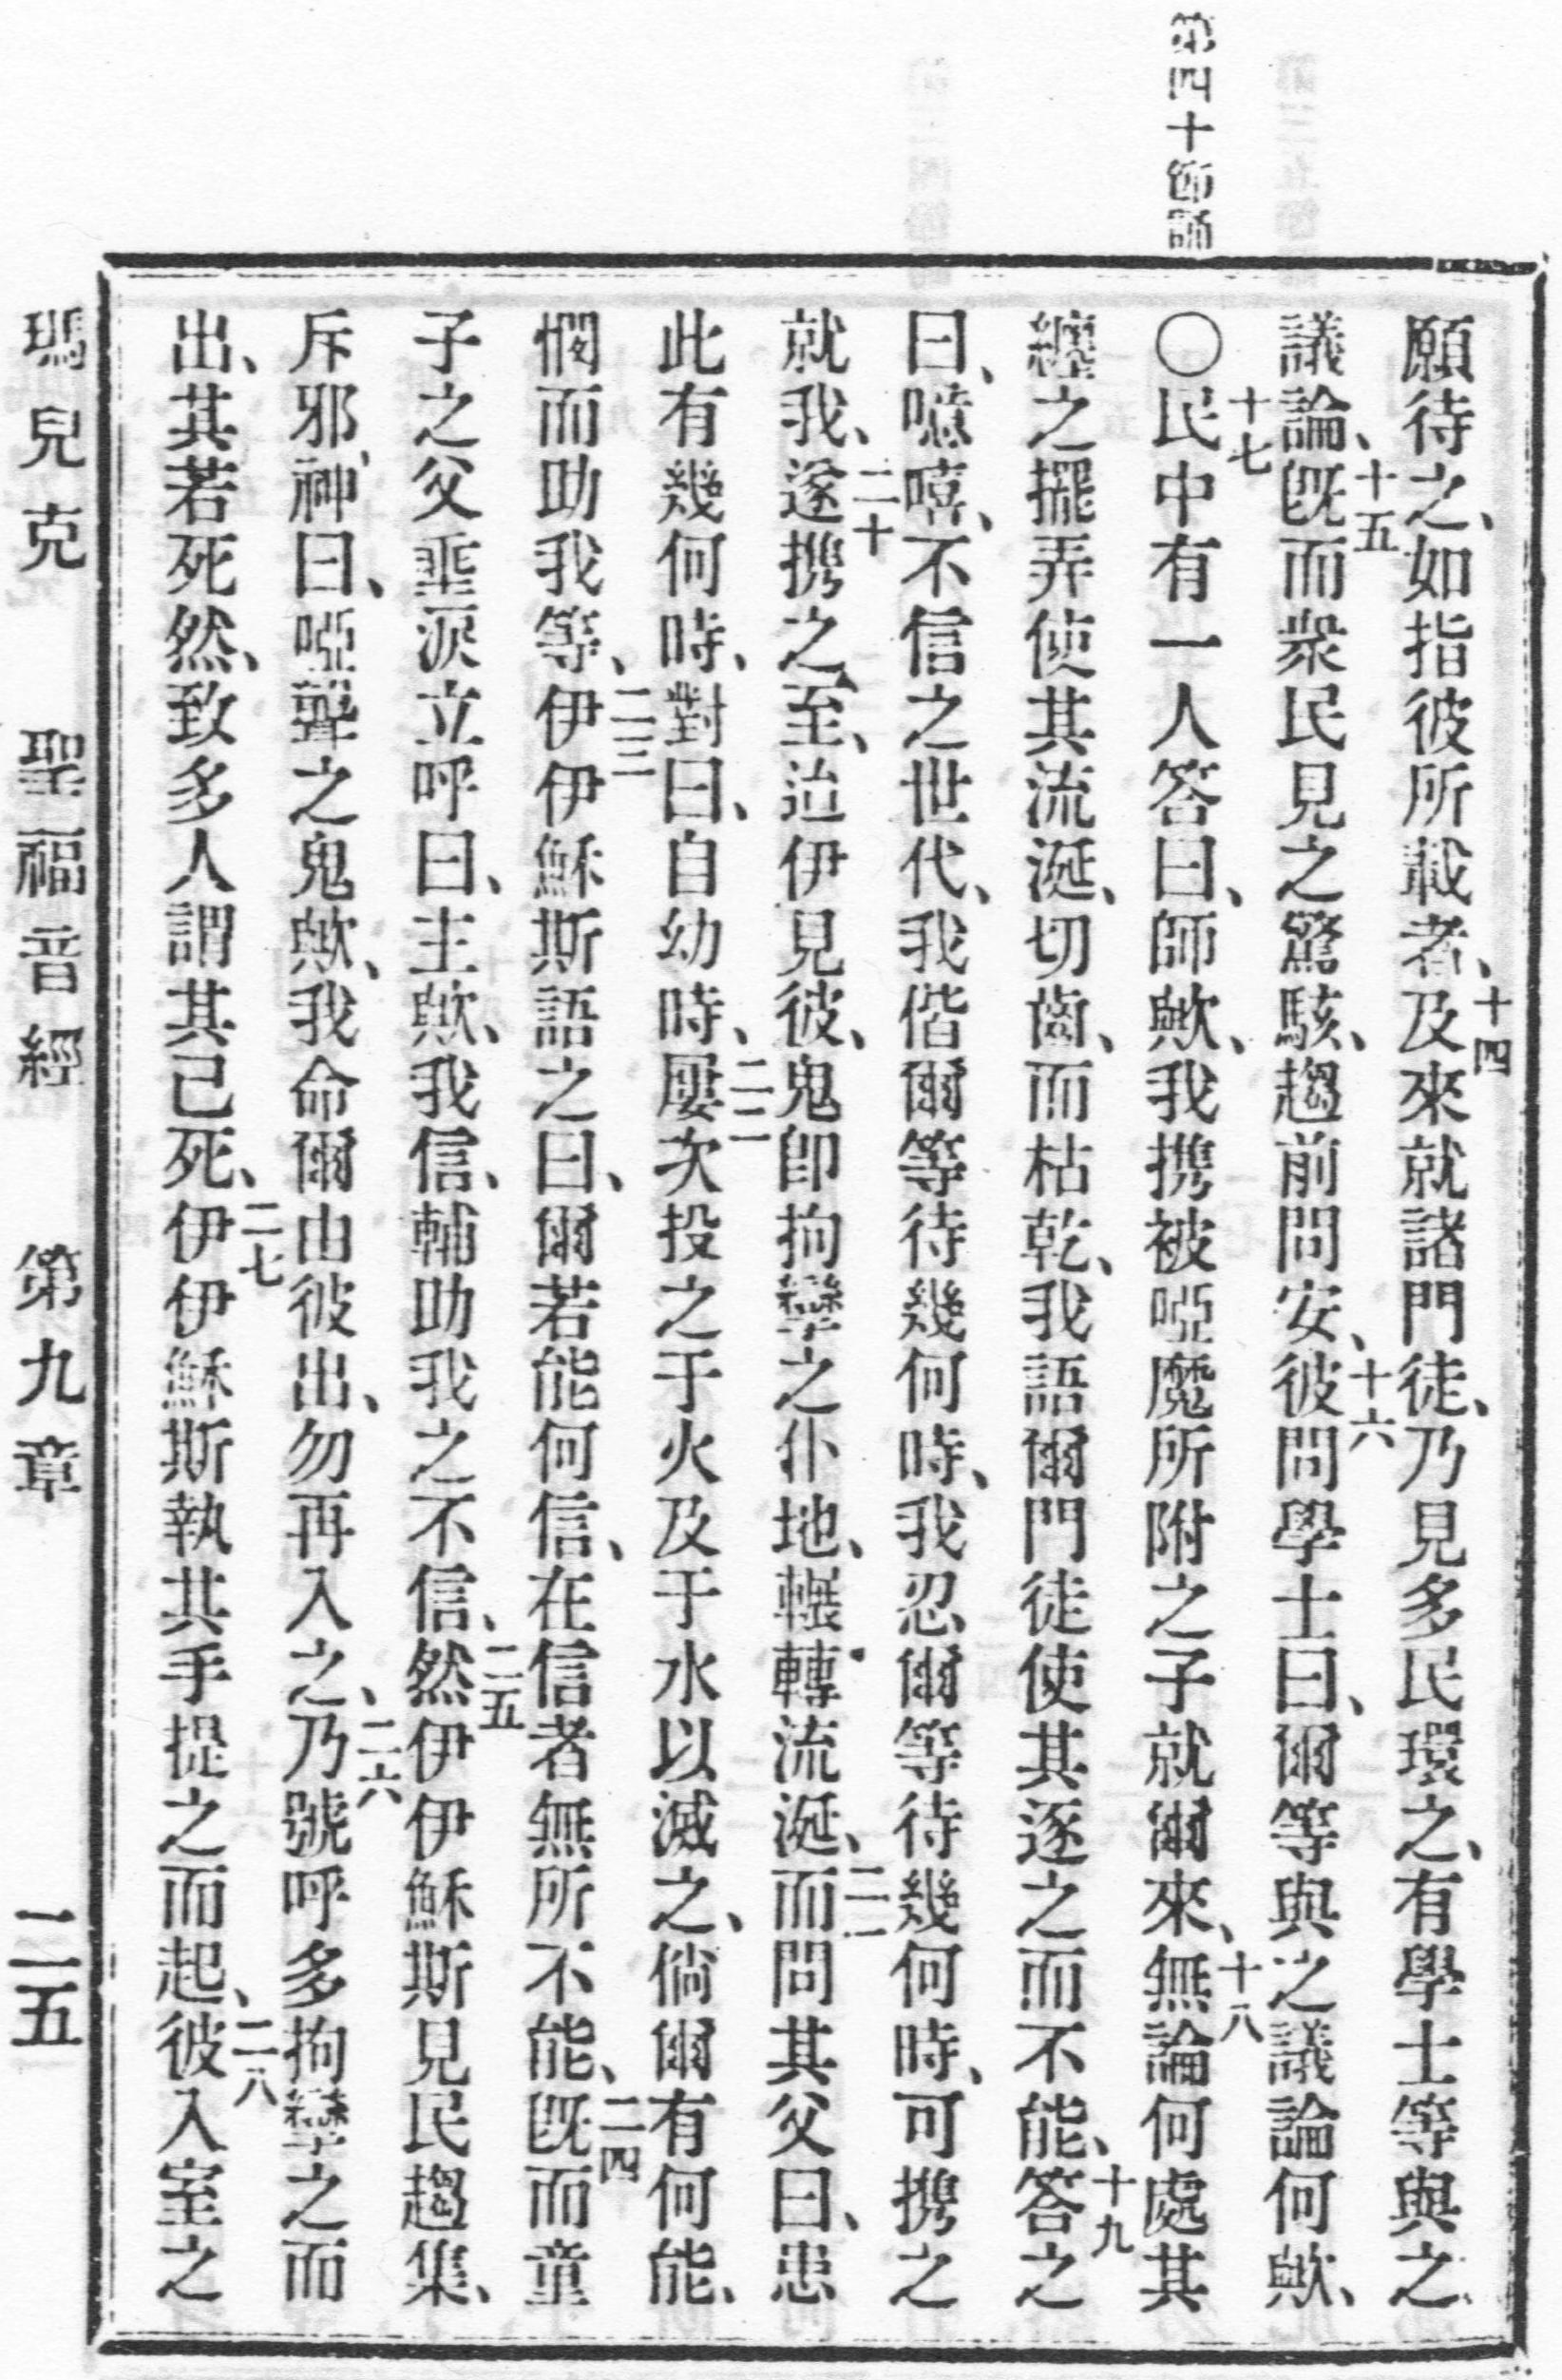 第四十節誦
願待之、如指彼所載者、十四及來就諸門徒、乃見多民環之、有學士等與之
議論、十五既而眾民見之驚駭、趨前問安、十六彼問學士曰、爾等與之議論何歟、
〇十七民中有一人答曰、師歟、我携被啞魔所附之子就爾來、十八無論何處其
纏之擺弄使其流涎、切齒、而枯乾、我語爾門徒使其逐之而不能、十九答之
曰、噫嘻、不信之世代、我偕爾等待幾何時、我忍爾等待幾何時、可携之
就我、二十遂携之至、迨伊見彼、鬼即拘攣之仆地、輾轉流涎、二一而問其父曰、患
此有幾何時、對曰、自幼時、二二屢次投之于火及于水以滅之、倘爾有何能、
憫而助我等、二三伊伊穌斯語之曰、爾若能何信、在信者無所不能、二四既而童
子之父垂淚立呼曰、主歟、我信、輔助我之不信、二五然伊伊穌斯見民趨集、
斥邪神曰、啞聾之鬼歟、我命爾由彼出、勿再入之、二六乃號呼多拘攣之而
出、其若死然、致多人謂其已死、二七伊伊穌斯執其手提之而起、二八彼入室之
瑪兒克　聖福音經　第九章　二五